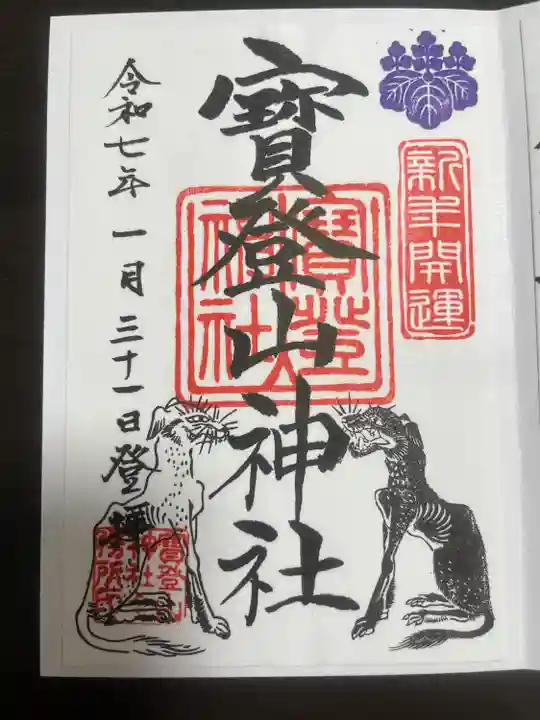 新年開運
寶登山神社
寶登山神社
令和七年一月三十一日登拝
寶登山神社社務所印